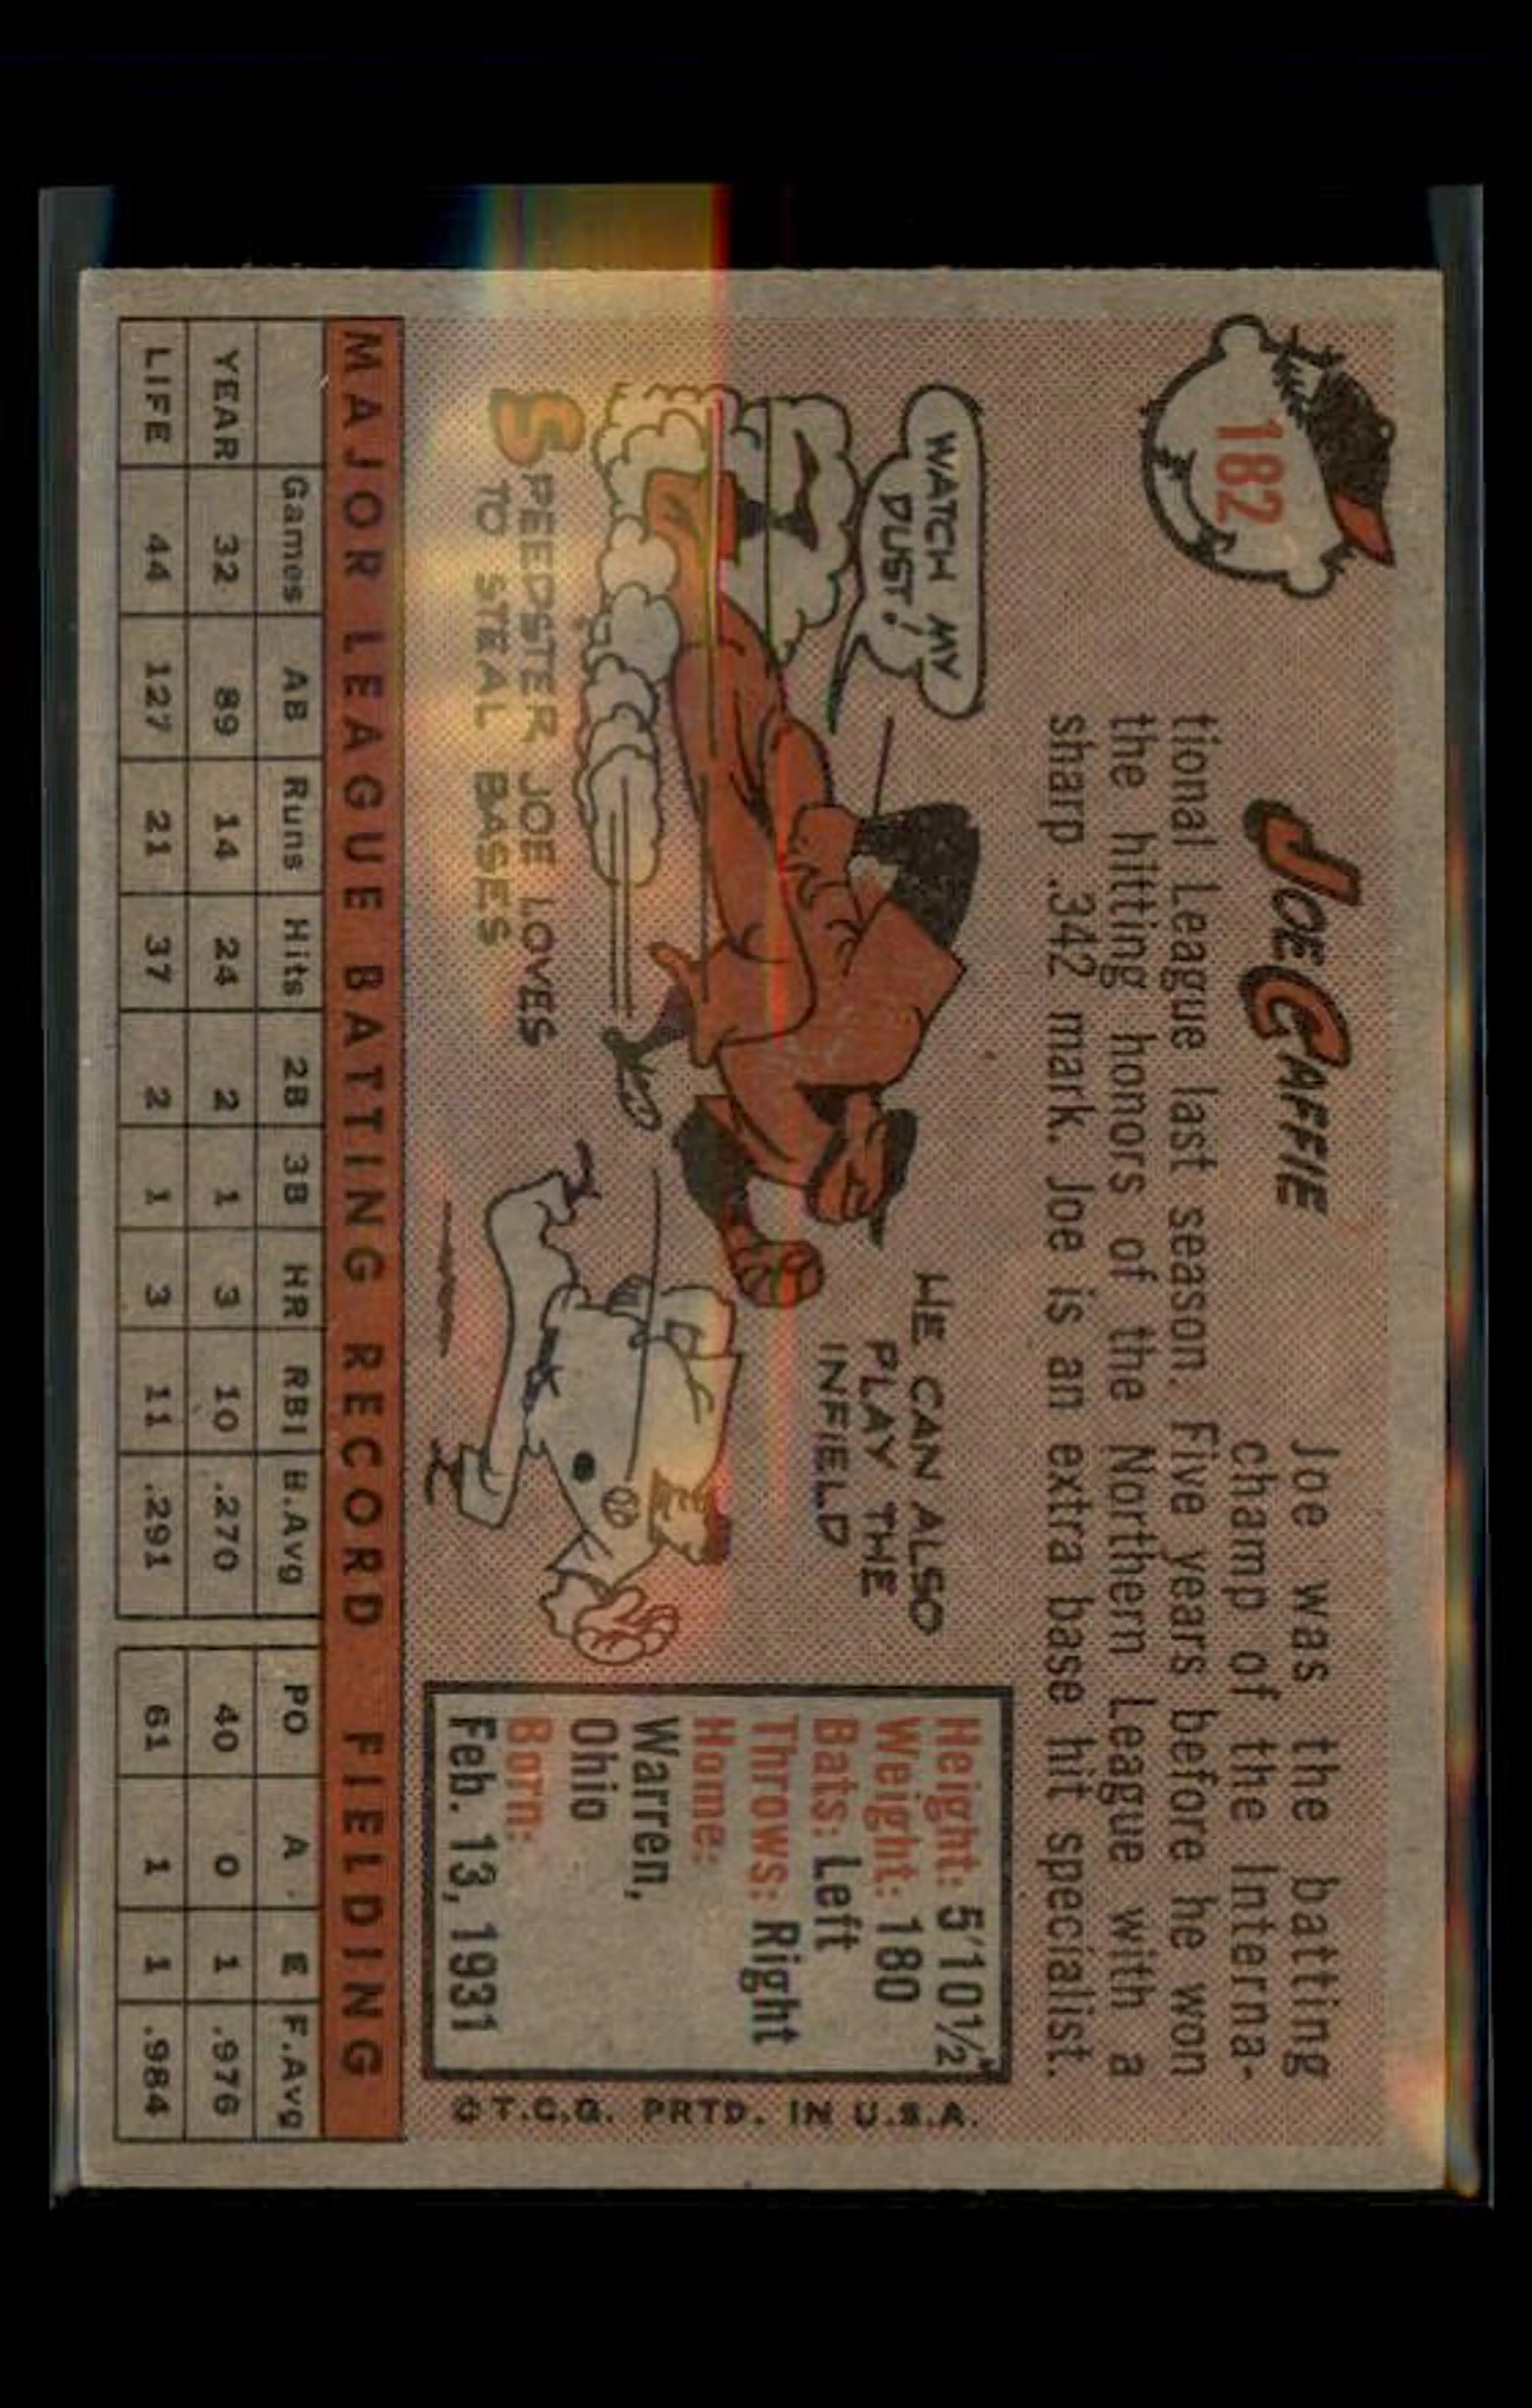 182
JOE CAFFIE
Joe was the batting
champ of the Interna-
tional League last season. Five years before he won
the hitting honors of the Northern League with a
sharp .342 mark. Joe is an extra base hit specialist.
WATCH MY
DUST!
SPEEDSTER JOE LOVES
TO STEAL BASES
HE CAN ALSO
PLAY THE
INFIELD
Height: 5'10½"
Weight: 180
Bats: Left
Throws: Right
Home:
Warren,
Ohio
Born:
Feb. 13, 1931
© T.C.G. PRTD. IN U.S.A.
MAJOR LEAGUE BATTING RECORD FIELDING
Games AB Runs Hits 2B 3B HR RBI B.Avg PO A E F.Avg
YEAR 32 89 14 24 2 1 3 10 .270 40 0 1 .976
LIFE 44 127 21 37 2 1 3 11 .291 61 1 1 .984